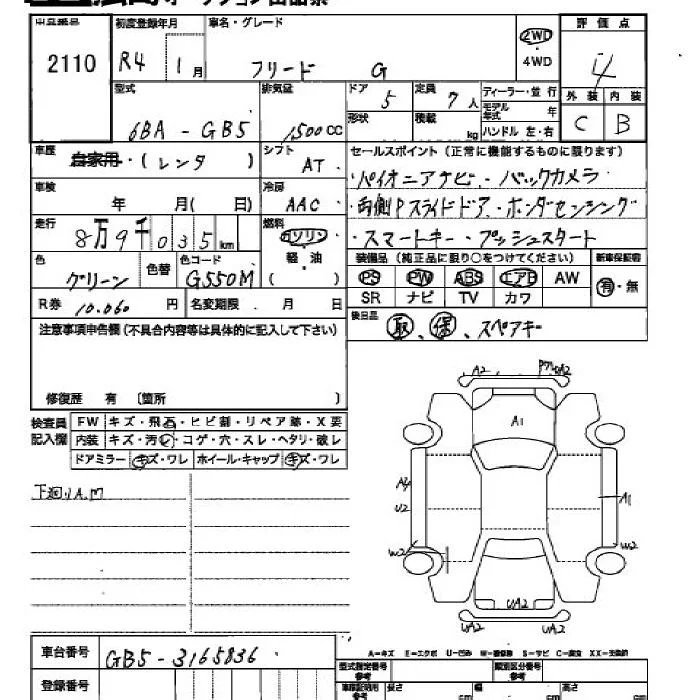 出品番号 2110
初度登録年月 R4 1月
車名・グレード フリード G
2WD
・4WD
評価点 4
外装 内装
C B
型式 6BA - GB5
排気量 1500cc
ドア 5
定員 7人
形状
積載 kg
ディーラー・並行
モデル年式 年
ハンドル 左・右
車歴 自家用・(レンタ)
シフト AT
セールスポイント(正常に機能するものに限ります)
・パイオニアナビ・バックカメラ
・両側Pスライドドア・ホンダセンシング
・スマートキー・プッシュスタート
車検 年 月(日)
冷房 AAC
走行 8万9千035km
燃料 ガソリン
軽・油
( )
色 グリーン
色替
色コード G550M
装備品(純正品に限り○をつけてください)
PS PW ABS エアB AW
SR ナビ TV カワ
新車保証書
有・無
R券 10.060円
名変期限 . 月 日
後日品 取、保、スペアキー
注意事項申告欄(不具合内容等は具体的に記入して下さい)
修復歴 有 〔箇所 〕
検査員記入欄
FW キズ・飛石・ヒビ割・リペア跡・X要
内装 キズ・汚レ・コゲ・穴・スレ・ヘタリ・破レ
ドアミラー キズ・ワレ ホイール・キャップ キズ・ワレ
下廻りA.M
A2 UA2
A1
A4
U2
A1
W2 W2
UA2
UA2 UA2
A-キズ E-エクボ U-凹み W-補修跡 S-サビ C-腐食 XX-交換済
車台番号 GB5-3165836
登録番号
型式指定番号 参考
類別区分番号 参考
車庫証明用 参考
長さ cm 幅 cm 高さ cm